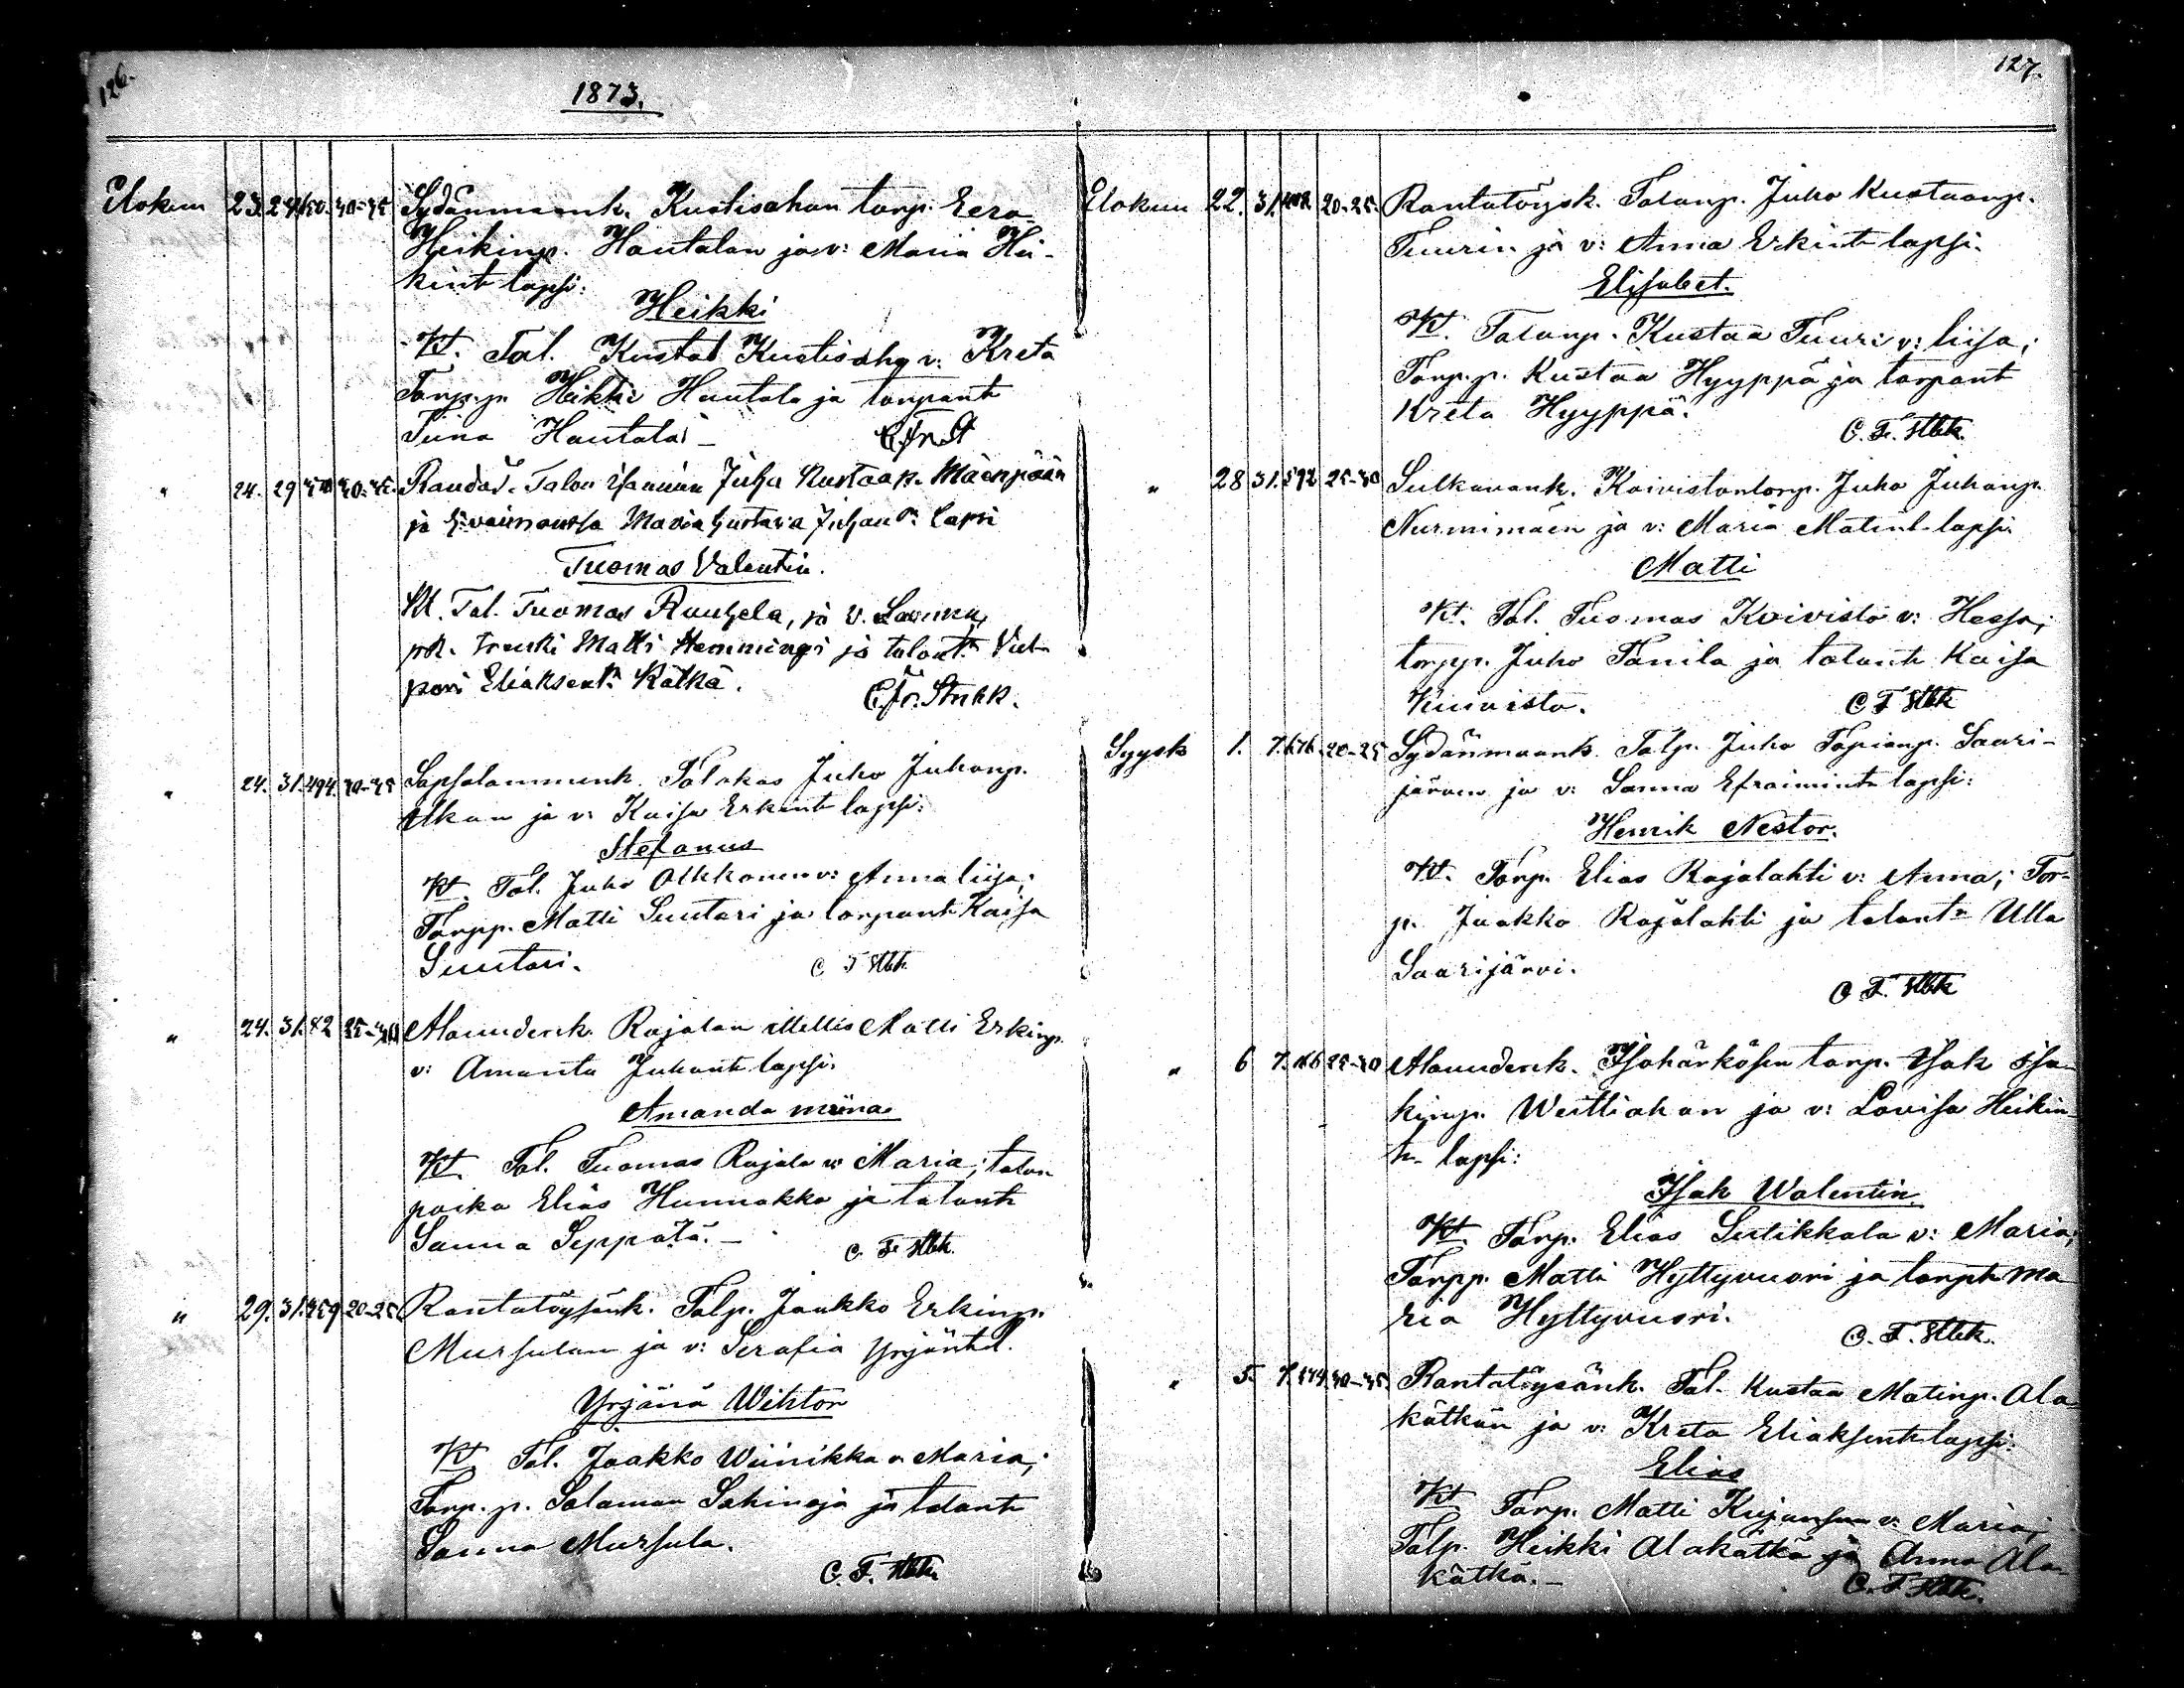 126.
1873.
Elokuu 23. 24. 150. 30-35 Sydänmaank. Kustisahan torp. Eera
Heikinp. Hautalan ja v: Maria Hei-
kint lapsi:
Heikki
Kt. Tal. Kustaa Kustisaho v: Kreta
Torp.p. Heikki Hautala ja torpant
Tiina Hautala -
" 24. 29 30-35. Randad. Talon Juha Kustaap. Mäenpään
ja Maria Gustava Juhant. lapsi
Tuomas Valentin.
Kt. Tal. Tuomas Ruuhela, ja v. Sanna,
Matti Hemminki ja talont. Viel-
pori Eliaksent. Kätkä.
C. Fr. Stnbk.
" 24. 31. 494. 30-35 Sapsalammink. Talokas Juho Juhanp.
Alkon ja v: Kaisa Erkint lapsi:
Stefanus
Kt. Tal. Juho Alkkonen v: Anna liisa;
Torpp. Matti Suutari ja torpant Kaisa
Suutari.
C F Stbk
" 24. 31. 42 25-30 Alauudenk. Rajalan itellis Matti Erkinp.
v: Amanta Juhant lapsi.
Amanda miina
Kt. Tal. Tuomas Rajala v: Maria; talon
poika Elias Hunnakko ja talont
Sanna Seppälä. -
C. Fr Stbk.
" 29. 31. 359 20-25 Rantatöysänk. Talp. Jaakko Erkinp.
Mursulan ja v: Serafia Yrjäntd.
Yrjänä Wihtor
Kt. Tal. Jaakko Wiinikka v. Maria;
Torp.p. Salamon Sahinoja ja talont
Sanna Mursula.
C. F. Stbk
127.
Elokuu 22. 31. 20-25. Rantatöysk. Talonp. Juho Kustaanp.
Tuurin ja v: Anna Erkint lapsi.
Elisabet.
Kt. Talonp. Kustaa Tuuri v: liisa;
Torp.p. Kustaa Hyyppä ja torpant
Kreta Hyyppä.
C. Fr. Stbk.
" 28 31. 592 25-30 Sulkavank. Koivistontorp. Juho Juhanp.
Nurmimäen ja v: Maria Matint lapsi.
Matti
Kt. Tal. Tuomas Koivisto v: Hessa;
torpp. Juho Tanila ja talont Kaisa
Kuivisto.
C F Stbk
Syysk 1. 7. 676. 20-25 Sydänmaank. Talp. Juho Tapianp. Saari-
järven ja v: Sanna Efraimint lapsi:
Henrik Nestor.
Kt. Torp. Elias Rajalahti v: Anna; Tor-
p. Jaakko Rajalahti ja talont Ulla
Saarijärvi.
C F. Stbk
" 6 7. 166 25-30 Alauudenk. Isohärkösen torp. Isak Isa-
kinp. Weittiahon ja v: Lovisa Heikin-
t. lapsi:
Isak Walentin.
Kt. Torp. Elias Sulikkala v: Maria;
Torpp. Matti Hyttyvuori ja torpt Ma
ria Hyttyvuori.
C. F. Stbk.
" 5. 7. 30-35. Rantatöysänk. Tal. Kustaa Matinp. Ala
kätkän ja v: Kreta Eliaksent lapsi.
Elias
Kt. Torp. Matti Kujanpää v: Maria;
Talp. Heikki Alakätkä ja Anna Ala
kätkä. -
C. F Stbk.